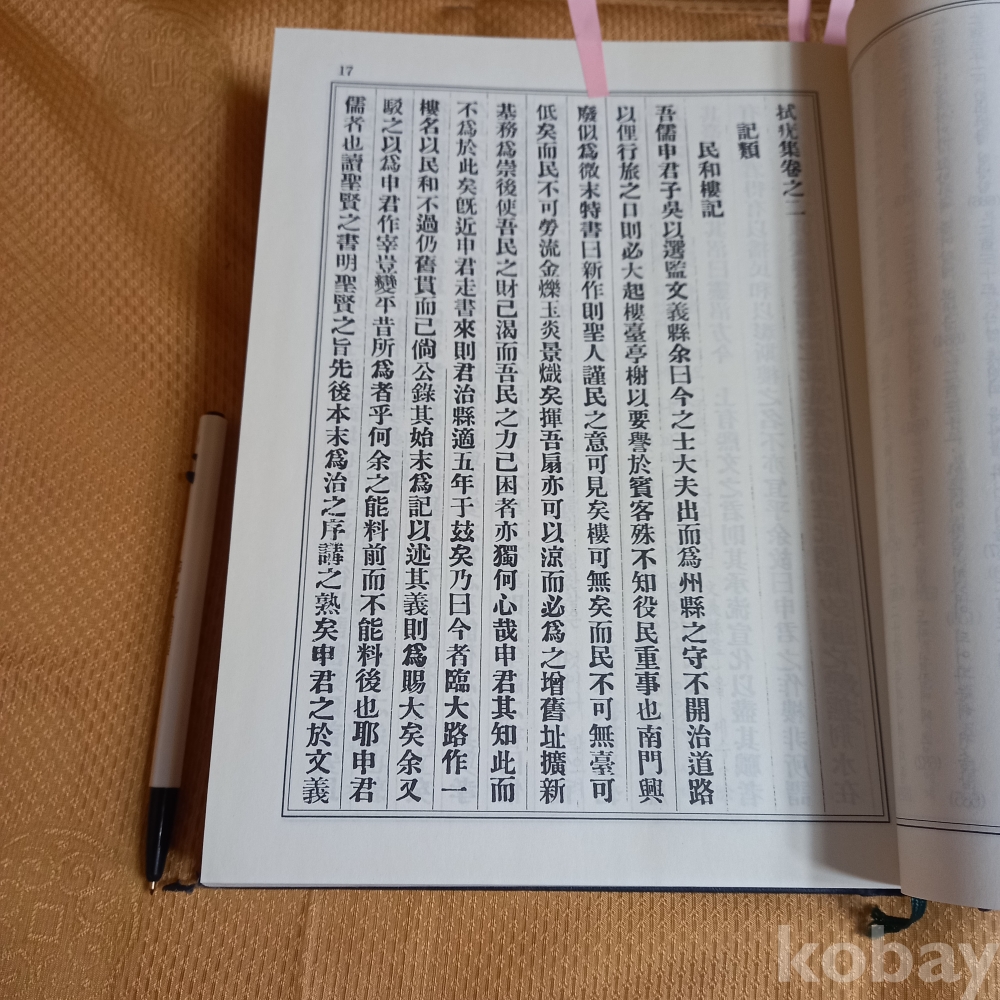 17
拭疣集卷之二
記類
民和樓記
吾儒申君子吳以選監文義縣余曰今之士大夫出而爲州縣之守不開治道路
以俚行旅之日則必大起樓臺亭榭以要譽於賓客殊不知役民重事也南門興
廢似爲微末特書曰新作則聖人謹民之意可見矣樓可無矣而民不可無臺可
低矣而民不可勞流金爍玉炎景熾矣揮吾扇亦可以涼而必爲之增舊址擴新
基務爲崇後使吾民之財已渴而吾民之力已困者亦獨何心哉申君其知此而
不爲於此矣旣近申君走書來則君治縣適五年于玆矣乃曰今者臨大路作一
樓名以民和不過仍舊貫而已倘公錄其始末爲記以述其義則爲賜大矣余又
駁之以爲申君作宰豈變平昔所爲者乎何余之能料前而不能料後也耶申君
儒者也讀聖賢之書明聖賢之旨先後本末爲治之序講之熟矣申君之於文義
kobay